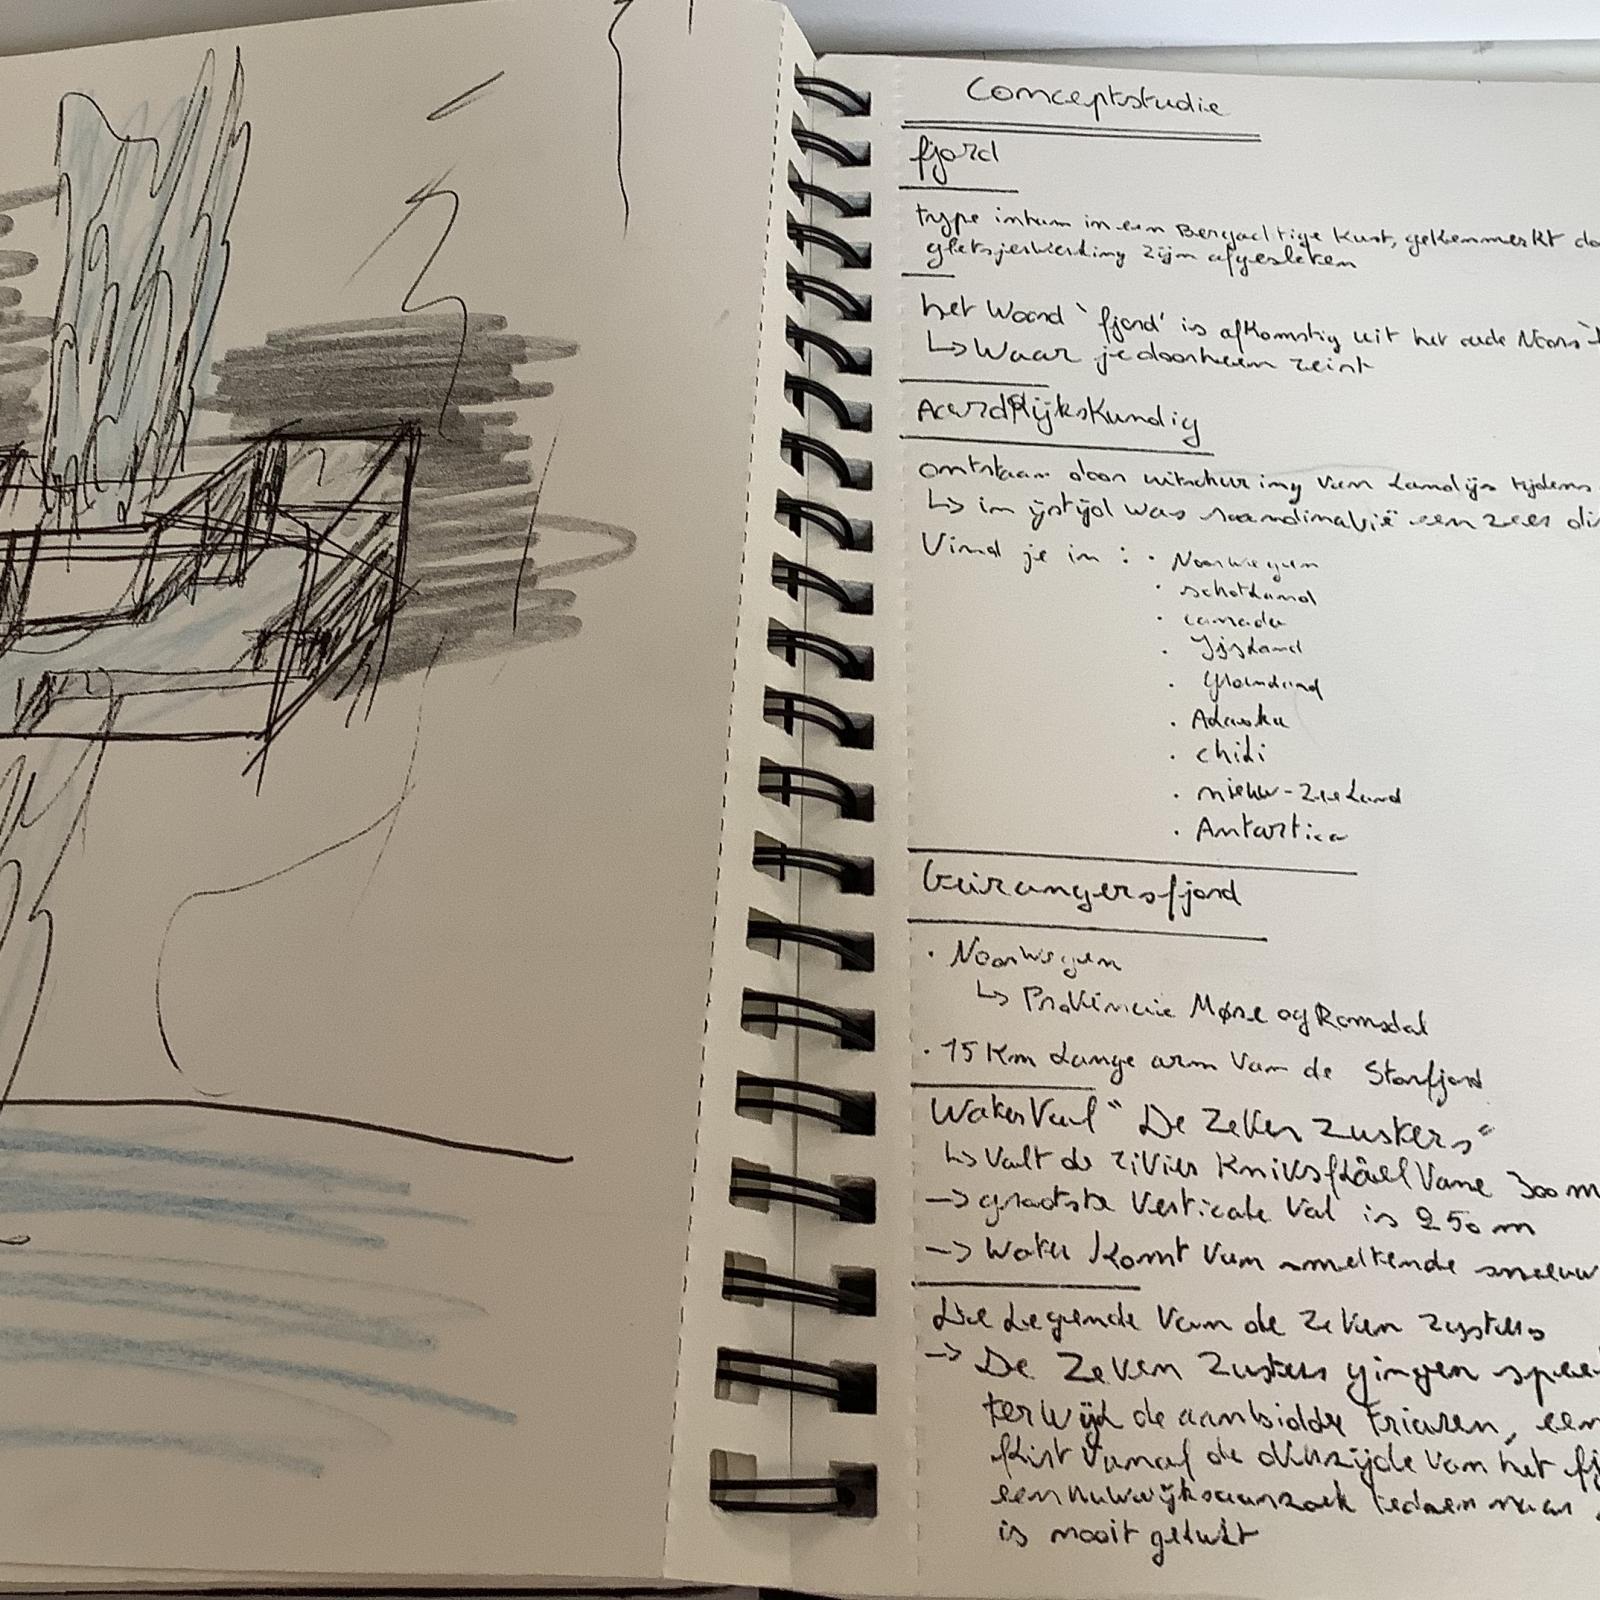 Conceptstudie
fjord
type inham in een Bergachtige Kust, gekenmerkt
gletsjerwerking zijn afgesleten
het Woord `fjord' is afkomstig uit het oude Noors
↳ Waar je doorheen reist
Aardrijkskundig
ontstaan door uitschuring van Landijs tijdens
↳ in ijstijd was scandinavië een zeer
Vind je in : · Noorwegen
· schotland
· canada
· Ijsland
· Groenland
· Alaska
· chili
· nieuw-Zeeland
· Antartica
Geirangersfjord
· Noorwegen
↳ Provincie Møre og Romsdal
· 15 Km Lange arm Van de Storfjord
Waterval “ De Zeven Zusters “
↳ Valt de rivier Knivsflåel Vane 300 m
-> grootste Verticale Val is 250 m
-> Water Komt Van smeltende sneeuw
Die Legende Van de Zeven Zusters
-> De Zeven Zusters gingen
terwijl de aanbidder Friaren, een
flirt Vanaf de overzijde Van het
een huwelijksaanzoek
is nooit gelukt